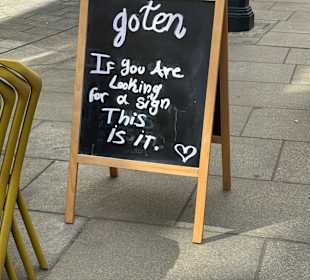 goten
If you Are
Looking
for a sign
This
Is it.